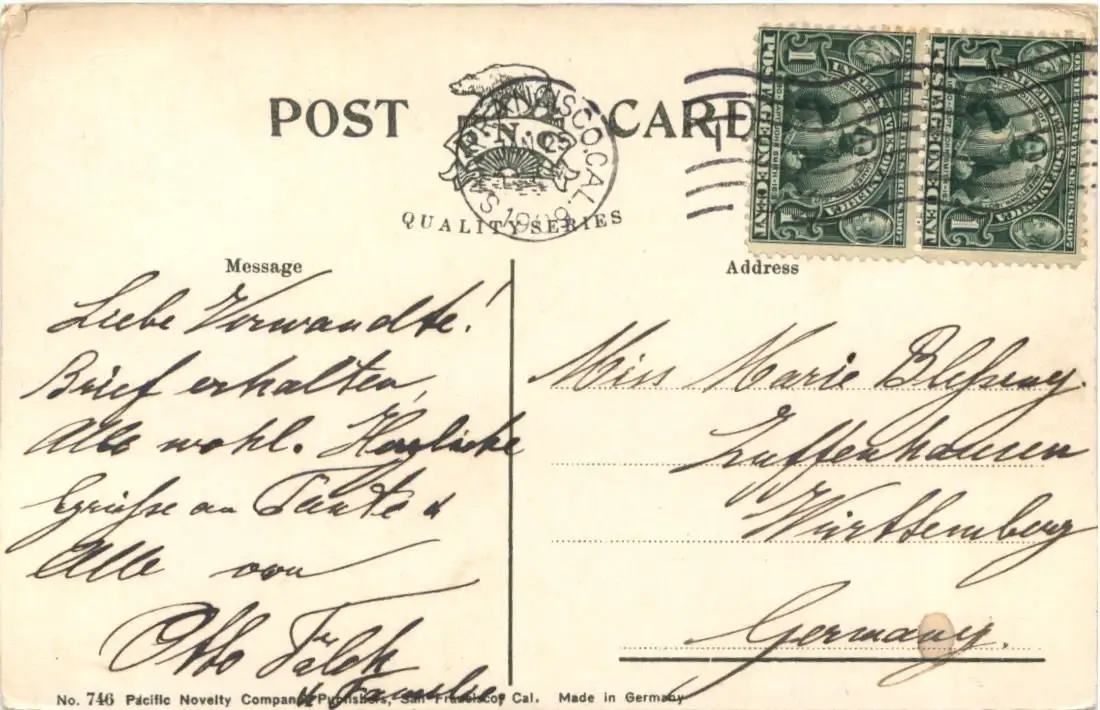 POST CARD
P. N. C.
QUALITY SERIES
SAN FRANCISCO, CAL.
1
POSTAGE ONE CENT
1
POSTAGE ONE CENT
Message
Liebe Verwandte!
Brief erhalten,
Alle wohl. Herzliche
Grüße an Tante u
Alle von
Otto
u Familie.
Address
Miss Marie
Zuffenhausen
Württemberg
Germany.
No. 746 Pacific Novelty Company, Publishers, San Francisco, Cal. Made in Germany